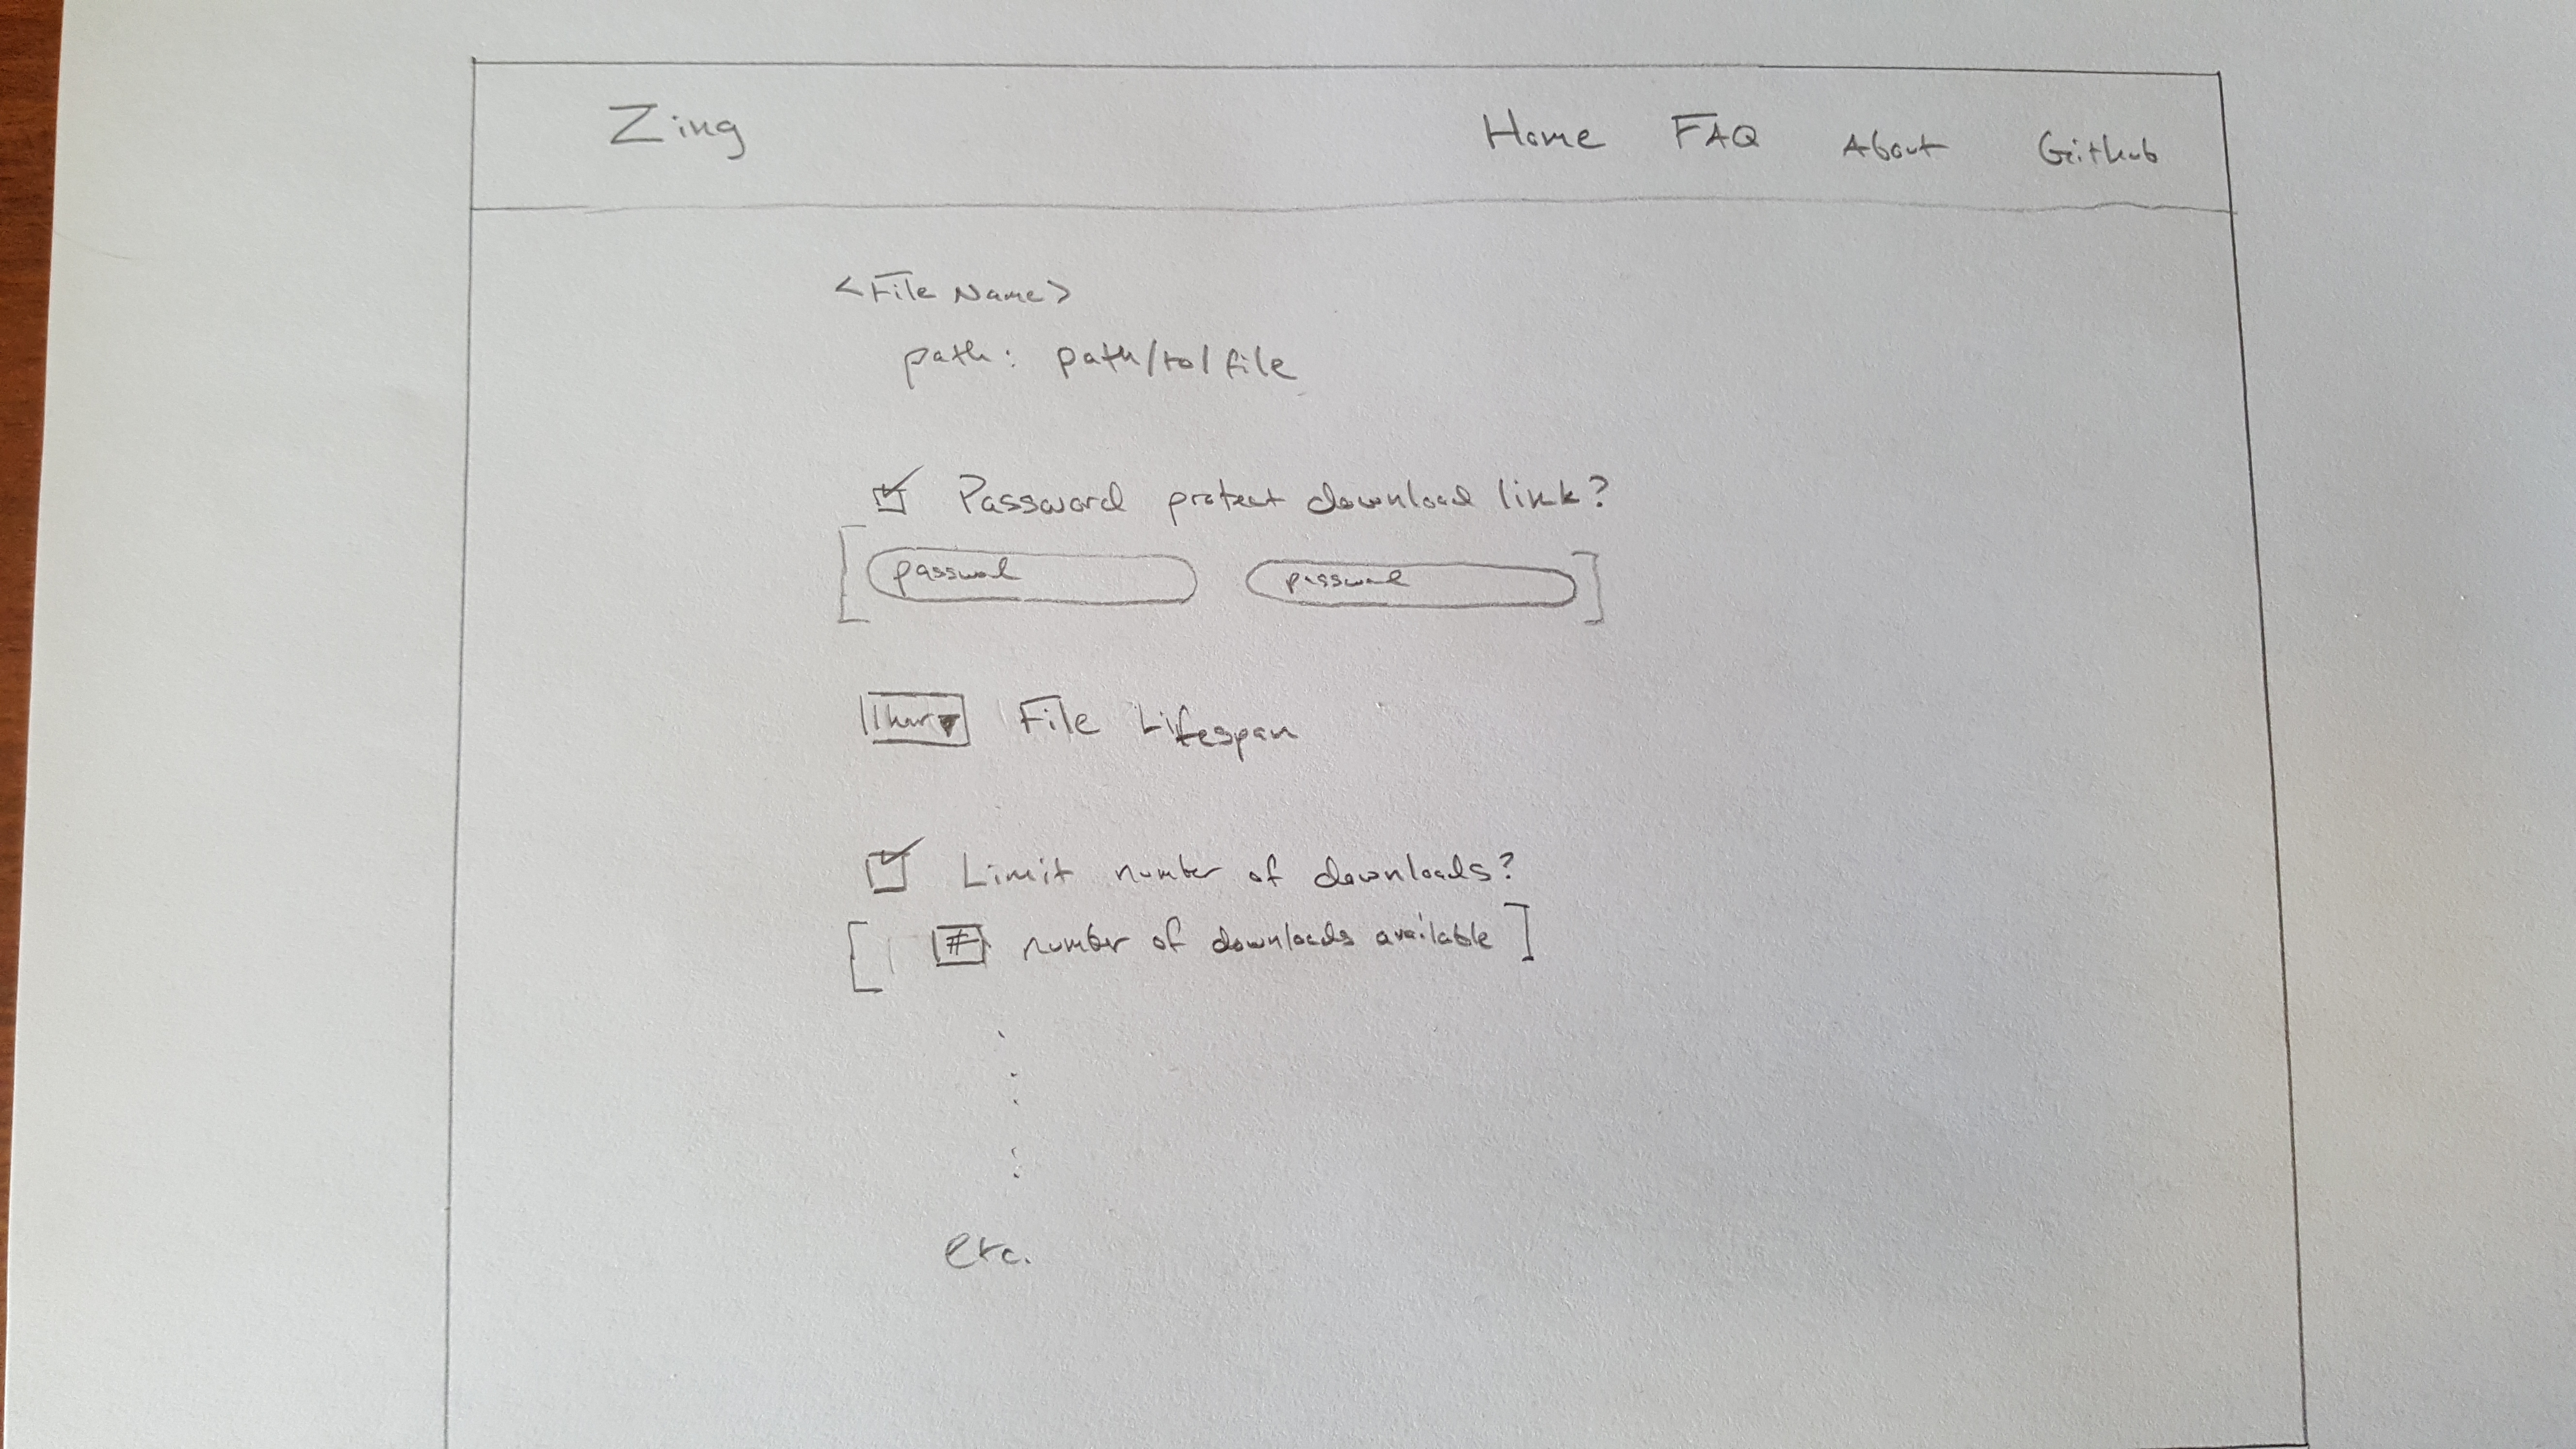 Zing Home FAQ About Github
<File Name>
path: path/to/file
Password protect download link?
password password
1 hour File Lifespan
Limit number of downloads?
[ # number of downloads available ]
etc.